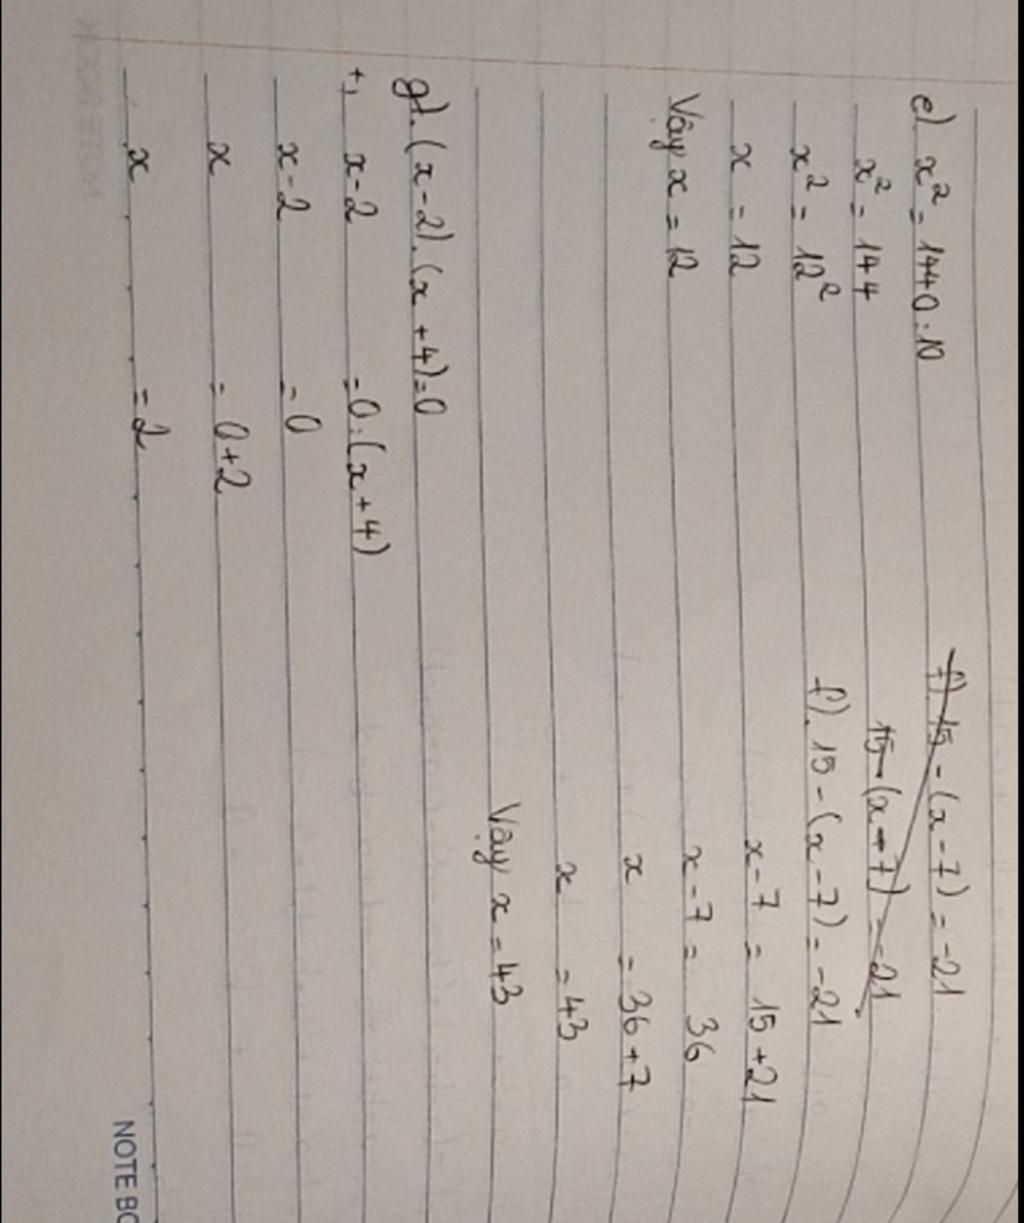 e) x² = 1440 : 10
x² = 144
x² = 12²
x = 12
Vậy x = 12
f) 15 - (x - 7) = -21
15 - (x + 7) = -21
f). 15 - (x - 7) = -21
x - 7 = 15 + 21
x - 7 = 36
x = 36 + 7
x = 43
Vậy x = 43
g). (x - 2). (x + 4) = 0
+, x - 2 = 0 : (x + 4)
x - 2 = 0
x = 0 + 2
x = 2
NOTE BO